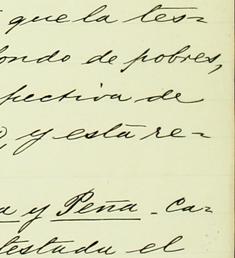 que la tes-
ondo de pobres,
pectiva de
, y está re-
a y Peña - ca-
testada el